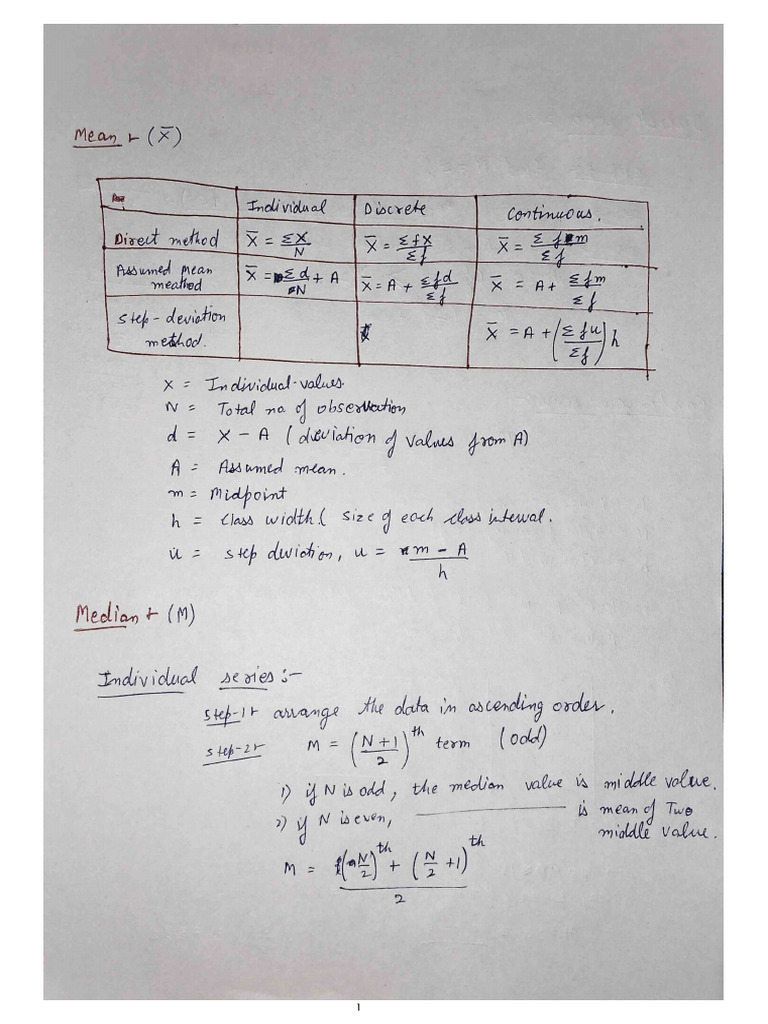 Mean → (X̄)
Individual Discrete Continuous.
Direct method X̄ = ΣX/N X̄ = ΣfX/Σf X̄ = Σfm/Σf
Assumed mean meathod X̄ = Σd/N + A X̄ = A + Σfd/Σf X̄ = A + Σfm/Σf
Step-deviation method. X̄ = A + (Σfu/Σf) h
X = Individual-values.
N = Total no of observation
d = X - A (deviation of values from A)
A = Assumed mean.
m = Midpoint
h = class width ( size of each class interval.
u = step deviation, u = m - A / h
Median → (M)
Individual series :-
Step-1→ arrange the data in ascending order.
Step-2→ M = (N+1/2)th term (odd)
1) if N is odd, the median value is middle value.
2) if N is even, ———— is mean of Two middle value.
M = (N/2)th + (N/2 + 1)th / 2
1